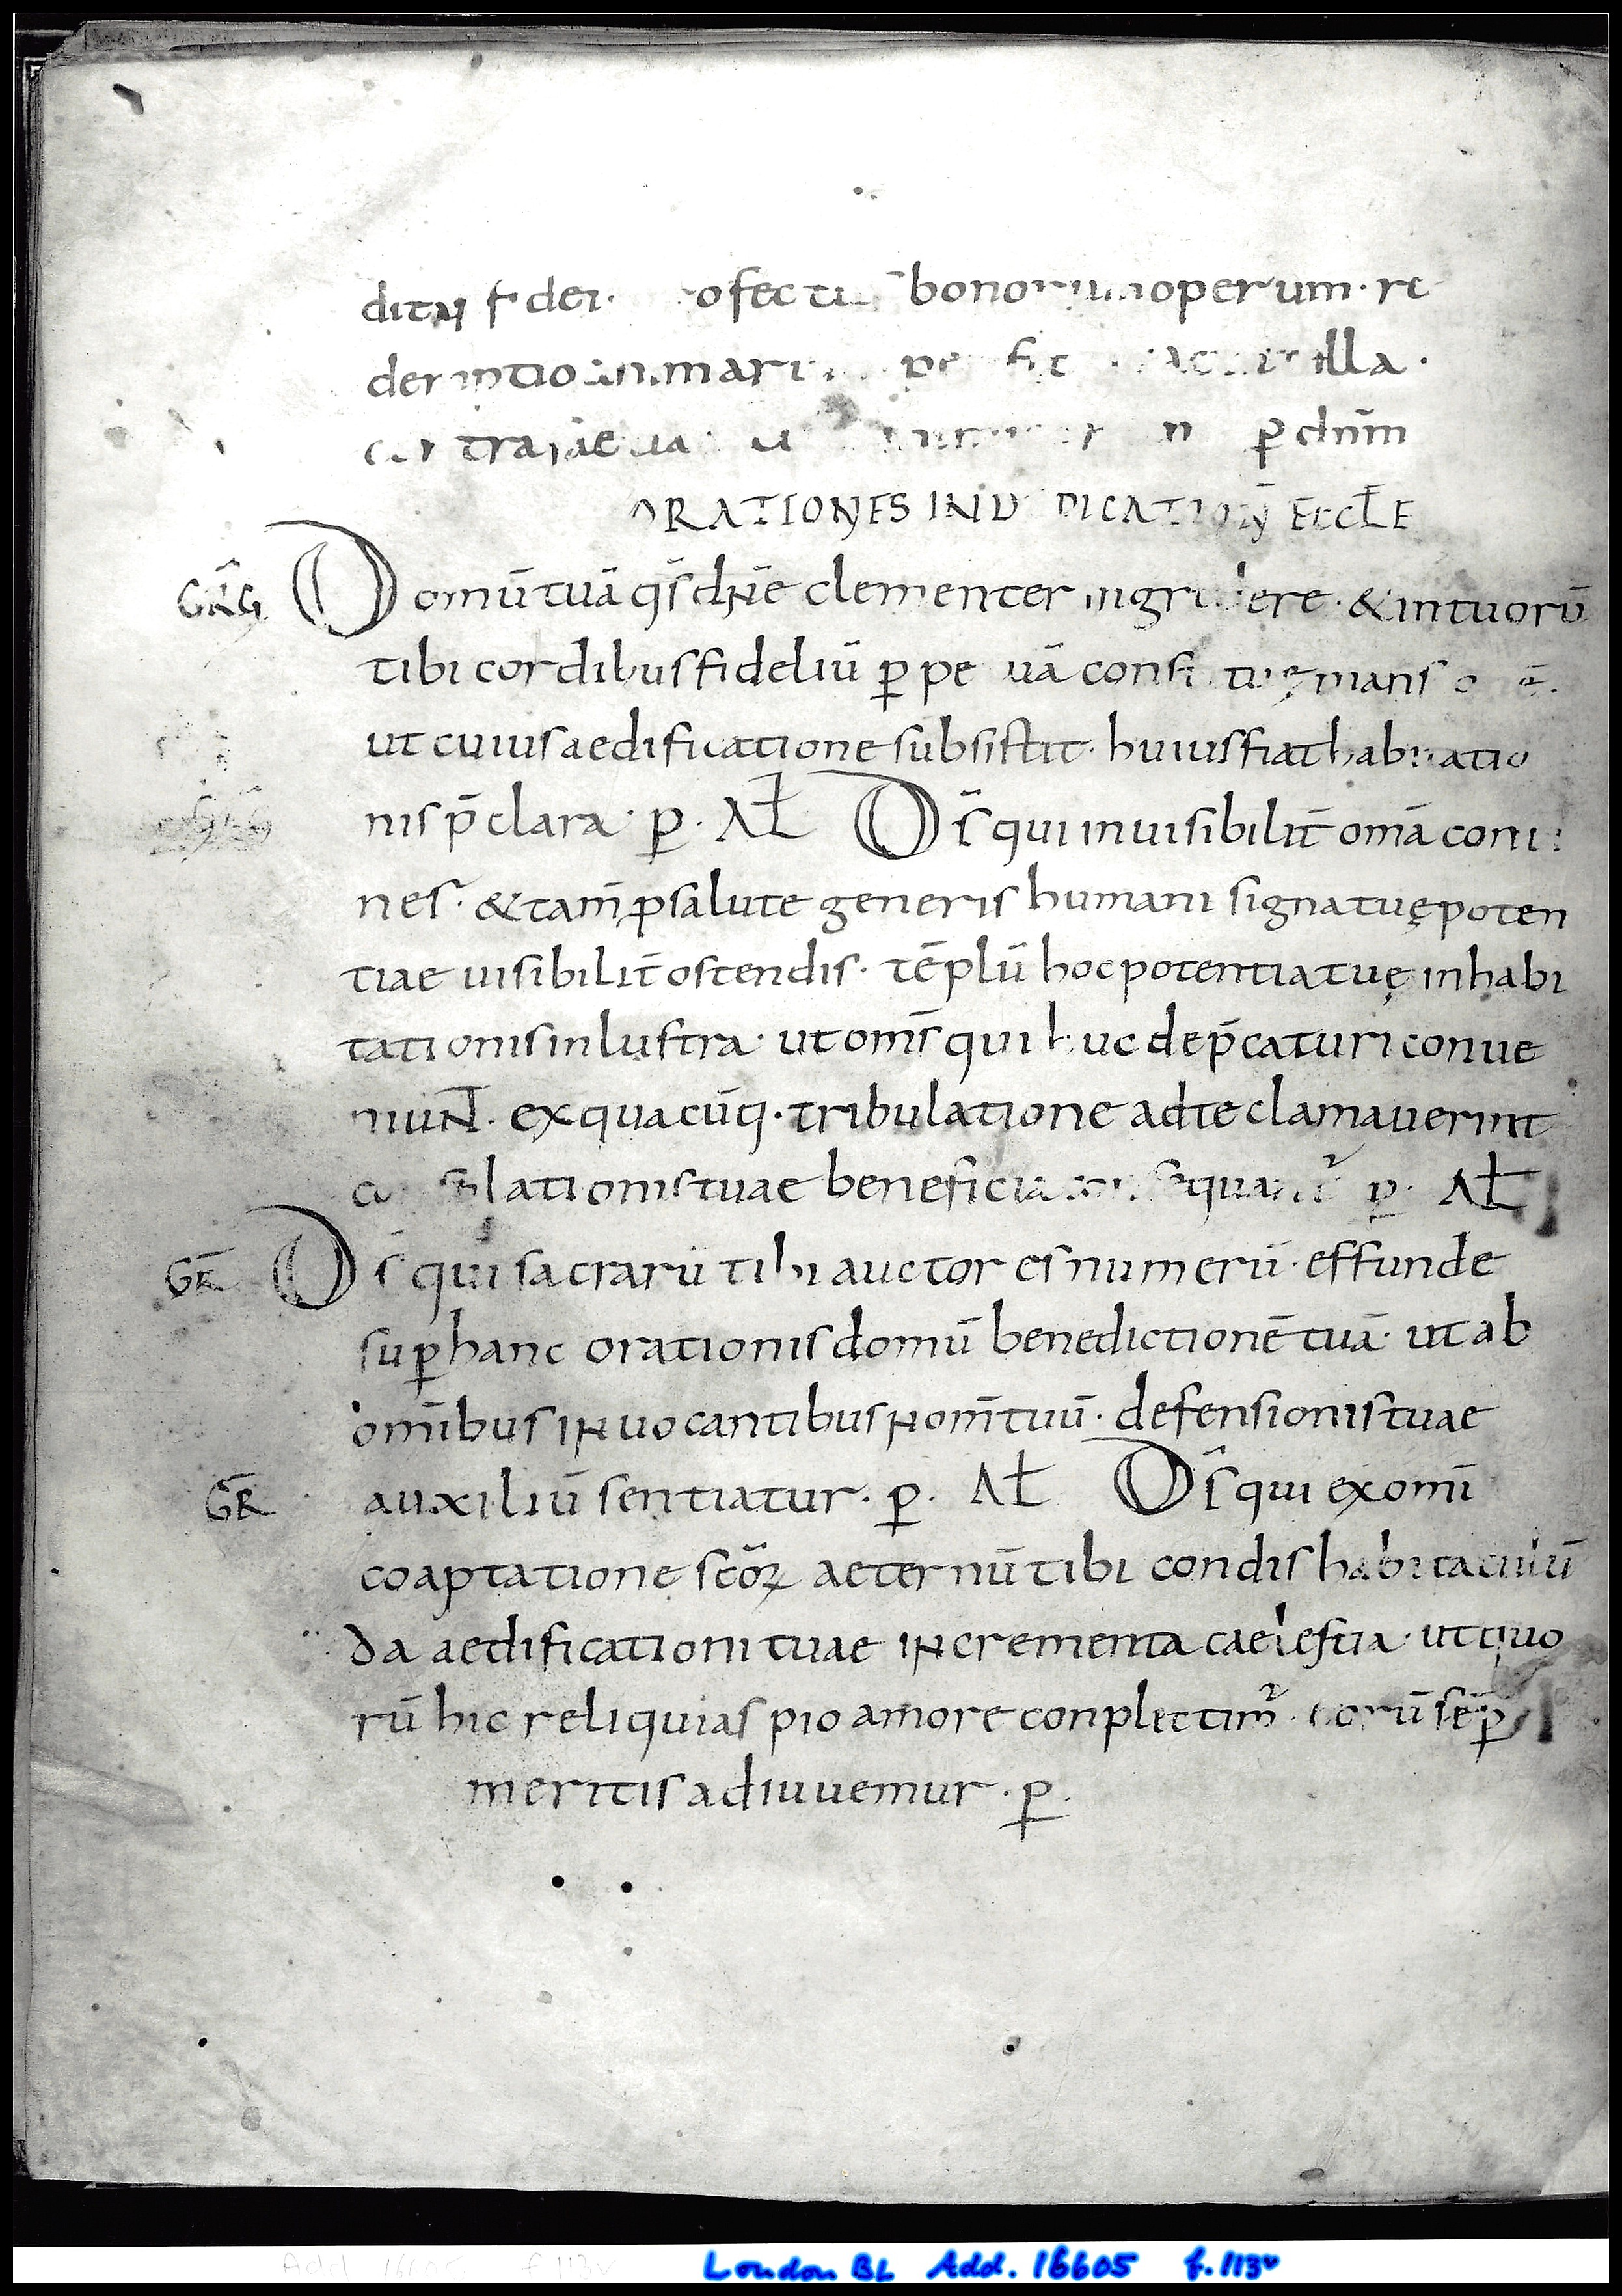 fidei · bonorum operum · re
illa ·
ꝑ dn̄m
ORATIONES IN ECCŁE
GR̄G Domū tuā q̄s dn̄e clementer ingredere · & in tuorū
tibi cordibus fideliū ꝑpetuā
ut cuius aedificatione subsistit · huius fiat habitatio
nis p̄clara · ꝑ · AŁ D̄s qui inuisibilit̄ om̄a conti
nes · & tam̄ ꝓ salute generis humani signa tuę poten
tiae uisibilit̄ ostendis · tēplū hoc potentia tuę inhabi
tationis inlustra · ut om̄s qui huc dep̄caturi conue
niuN̄ · ex quacūq · tribulatione ad te clamauerint
consolationis tuae beneficia ꝑ · AŁ
GR̄ D̄s qui sacrarū tibi auctor es numerū · effunde
suꝑ hanc orationis domū benedictionē tuā · ut ab
om̄ibus inuocantibus nom̄ tuū · defensionis tuae
GR̄ auxiliū sentiatur · ꝑ · AŁ D̄s qui ex om̄i
coaptatione sc̄oꝝ aeternū tibi condis habitaculū
da aedificationi tuae incrementa caelestia · ut quo
rū hic reliquias pio amore conplectim̄ · eorū sēꝑ
meritis adiuuemur · ꝑ ·
London BL Add. 16605 f. 113v